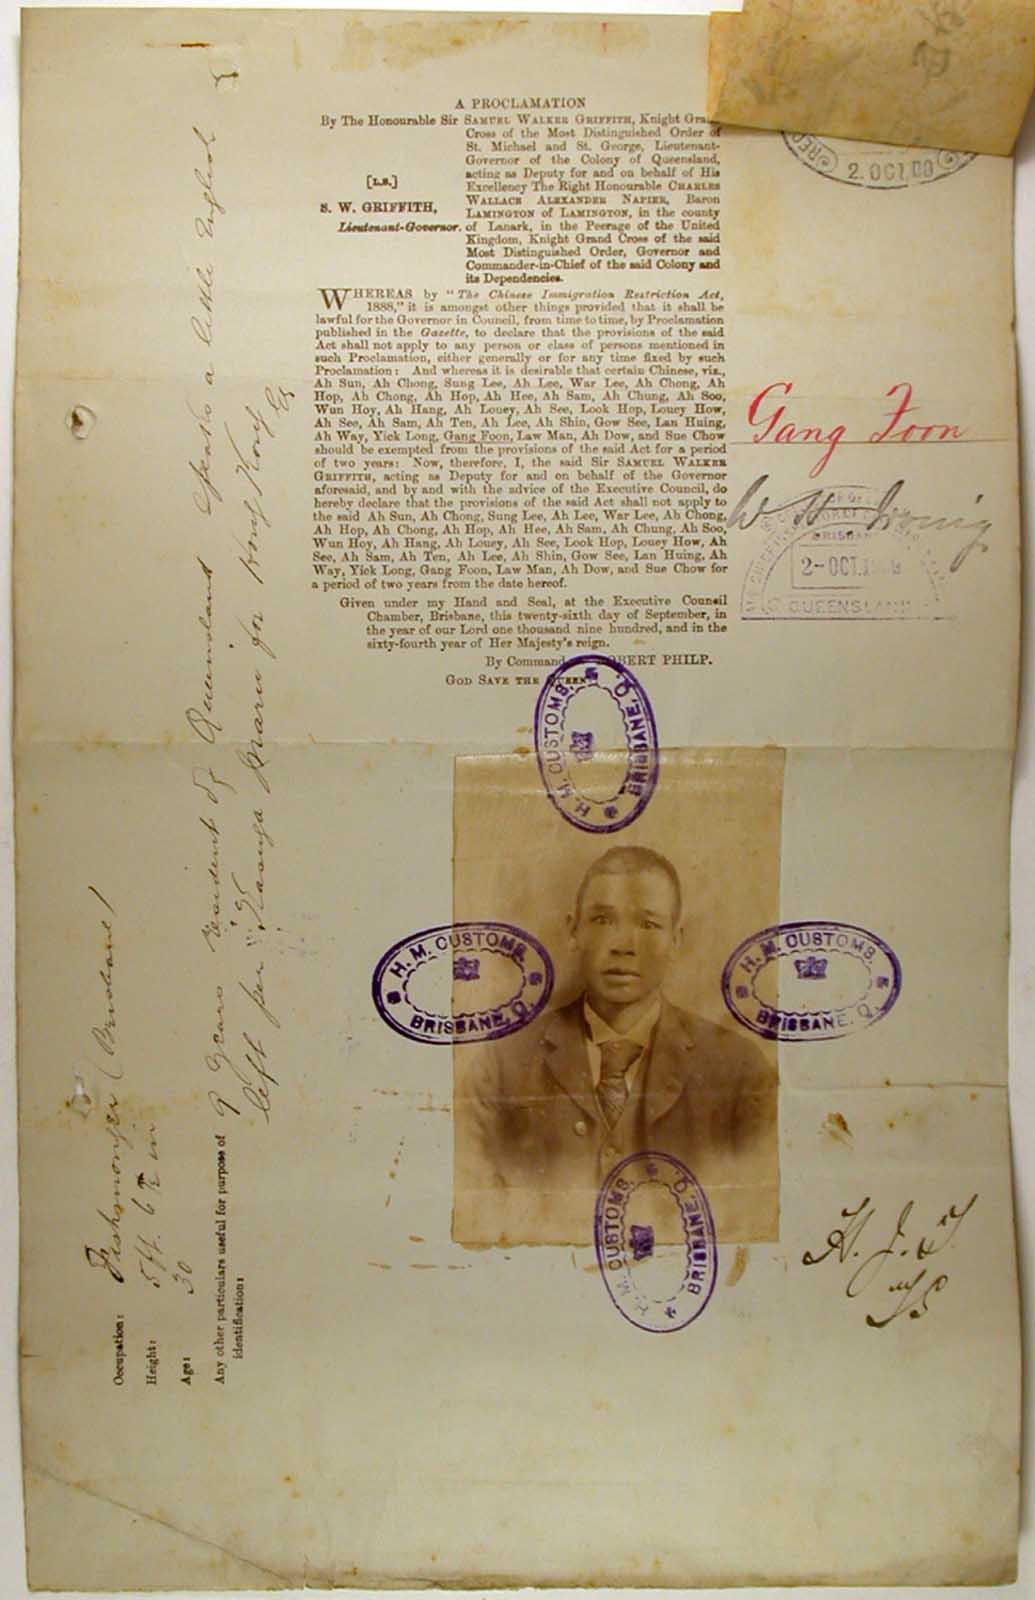 A PROCLAMATION
By The Honourable Sir SAMUEL WALKER GRIFFITH, Knight Grand
Cross of the Most Distinguished Order of
St. Michael and St. George, Lieutenant-
Governor of the Colony of Queensland,
acting as Deputy for and on behalf of His
Excellency The Right Honourable CHARLES
WALLACE ALEXANDER NAPIER, Baron
LAMINGTON of LAMINGTON, in the county
of Lanark, in the Peerage of the United
Kingdom, Knight Grand Cross of the said
Most Distinguished Order, Governor and
Commander-in-Chief of the said Colony and
its Dependencies.
[L.S.]
S. W. GRIFFITH,
Lieutenant-Governor.
WHEREAS by "The Chinese Immigration Restriction Act,
1888," it is amongst other things provided that it shall be
lawful for the Governor in Council, from time to time, by Proclamation
published in the Gazette, to declare that the provisions of the said
Act shall not apply to any person or class of persons mentioned in
such Proclamation, either generally or for any time fixed by such
Proclamation: And whereas it is desirable that certain Chinese, viz.,
Ah Sun, Ah Chong, Sung Lee, Ah Lee, War Lee, Ah Chong, Ah
Hop, Ah Chong, Ah Hop, Ah Hee, Ah Sam, Ah Chung, Ah Soo,
Wun Hoy, Ah Hang, Ah Louey, Ah See, Look Hop, Louey How,
Ah See, Ah Sam, Ah Ten, Ah Lee, Ah Shin, Gow See, Lan Huing,
Ah Way, Yick Long, Gang Foon, Law Man, Ah Dow, and Sue Chow
should be exempted from the provisions of the said Act for a period
of two years: Now, therefore, I, the said Sir SAMUEL WALKER
GRIFFITH, acting as Deputy for and on behalf of the Governor
aforesaid, and by and with the advice of the Executive Council, do
hereby declare that the provisions of the said Act shall not apply to
the said Ah Sun, Ah Chong, Sung Lee, Ah Lee, War Lee, Ah Chong,
Ah Hop, Ah Chong, Ah Hop, Ah Hee, Ah Sam, Ah Chung, Ah Soo,
Wun Hoy, Ah Hang, Ah Louey, Ah See, Look Hop, Louey How, Ah
See, Ah Sam, Ah Ten, Ah Lee, Ah Shin, Gow See, Lan Huing, Ah
Way, Yick Long, Gang Foon, Law Man, Ah Dow, and Sue Chow for
a period of two years from the date hereof.
Given under my Hand and Seal, at the Executive Council
Chamber, Brisbane, this twenty-sixth day of September, in
the year of our Lord one thousand nine hundred, and in the
sixty-fourth year of Her Majesty's reign.
By Command, ROBERT PHILP.
GOD SAVE THE QUEEN
2. OCT. 00
Gang Foon
W H Irving
BRISBANE
2-OCT.
QUEENSLAND
H. M. CUSTOMS.
BRISBANE, Q.
H. M. CUSTOMS.
BRISBANE, Q.
H. M. CUSTOMS.
BRISBANE, Q.
H. M. CUSTOMS.
BRISBANE, Q.
H. J. T.
Occupation: Fishmonger (Brisbane)
Height: 5 ft. 6½ in
Age: 30
Any other particulars useful for purpose of
identification:
9 years resident of Queensland speaks a little English
left per "Kasuga Maru" for Hong Kong